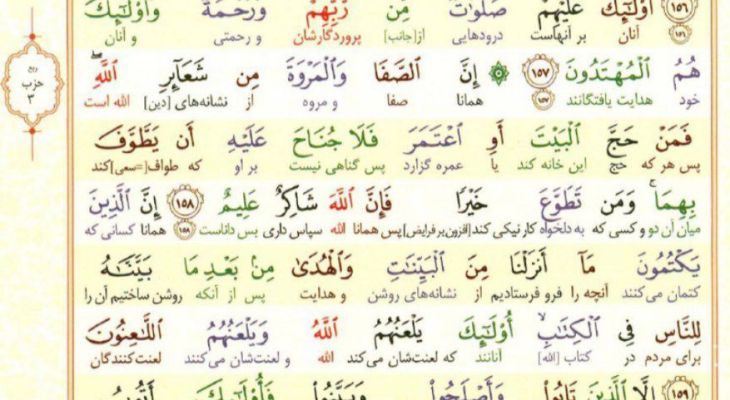 ۱۵۶ أُوْلَـٰٓئِكَ عَلَيْهِمْ صَلَوَٰتٌ مِّن رَّبِّهِمْ وَرَحْمَةٌ وَأُوْلَـٰٓئِكَ
۱۵۶ آنان بر آنهاست درودهایی از[جانب] پروردگارشان و رحمتی و آنان
هُمُ ٱلْمُهْتَدُونَ ۱۵۷ إِنَّ ٱلصَّفَا وَٱلْمَرْوَةَ مِن شَعَآئِرِ ٱللَّهِ
خود هدایت یافتگانند ۱۵۷ همانا صفا و مروه از نشانه‌های [دین] الله است
ربع
حزب
۳
فَمَنْ حَجَّ ٱلْبَيْتَ أَوِ ٱعْتَمَرَ فَلَا جُنَاحَ عَلَيْهِ أَن يَطَّوَّفَ
پس هر که حج این خانه کند یا عمره گزارد پس گناهی نیست بر او که طواف[=سعی]کند
بِهِمَا ۚ وَمَن تَطَوَّعَ خَيْرًا فَإِنَّ ٱللَّهَ شَاكِرٌ عَلِيمٌ ۱۵۸ إِنَّ ٱلَّذِينَ
میان آن دو و کسی که به دلخواه کار نیکی کند[افزون بر فرایض] پس همانا الله سپاس داری بس داناست ۱۵۸ همانا کسانی که
يَكْتُمُونَ مَآ أَنزَلْنَا مِنَ ٱلْبَيِّنَـٰتِ وَٱلْهُدَىٰ مِنۢ بَعْدِ مَا بَيَّنَّـٰهُ
کتمان می‌کنند آنچه را فرو فرستادیم از نشانه‌های روشن و هدایت پس از آنکه روشن ساختیم آن را
لِلنَّاسِ فِى ٱلْكِتَـٰبِ ۙ أُوْلَـٰٓئِكَ يَلْعَنُهُمُ ٱللَّهُ وَيَلْعَنُهُمُ ٱللَّـٰعِنُونَ
برای مردم در کتاب [الله] آنانند که لعنت‌شان می‌کند الله و لعنت‌شان می‌کنند لعنت‌کنندگان
۱۵۹ إِلَّا ٱلَّذِينَ تَابُوا۟ وَأَصْلَحُوا۟ وَبَيَّنُوا۟ فَأُو۟لَـٰٓئِكَ أَتُوبُ